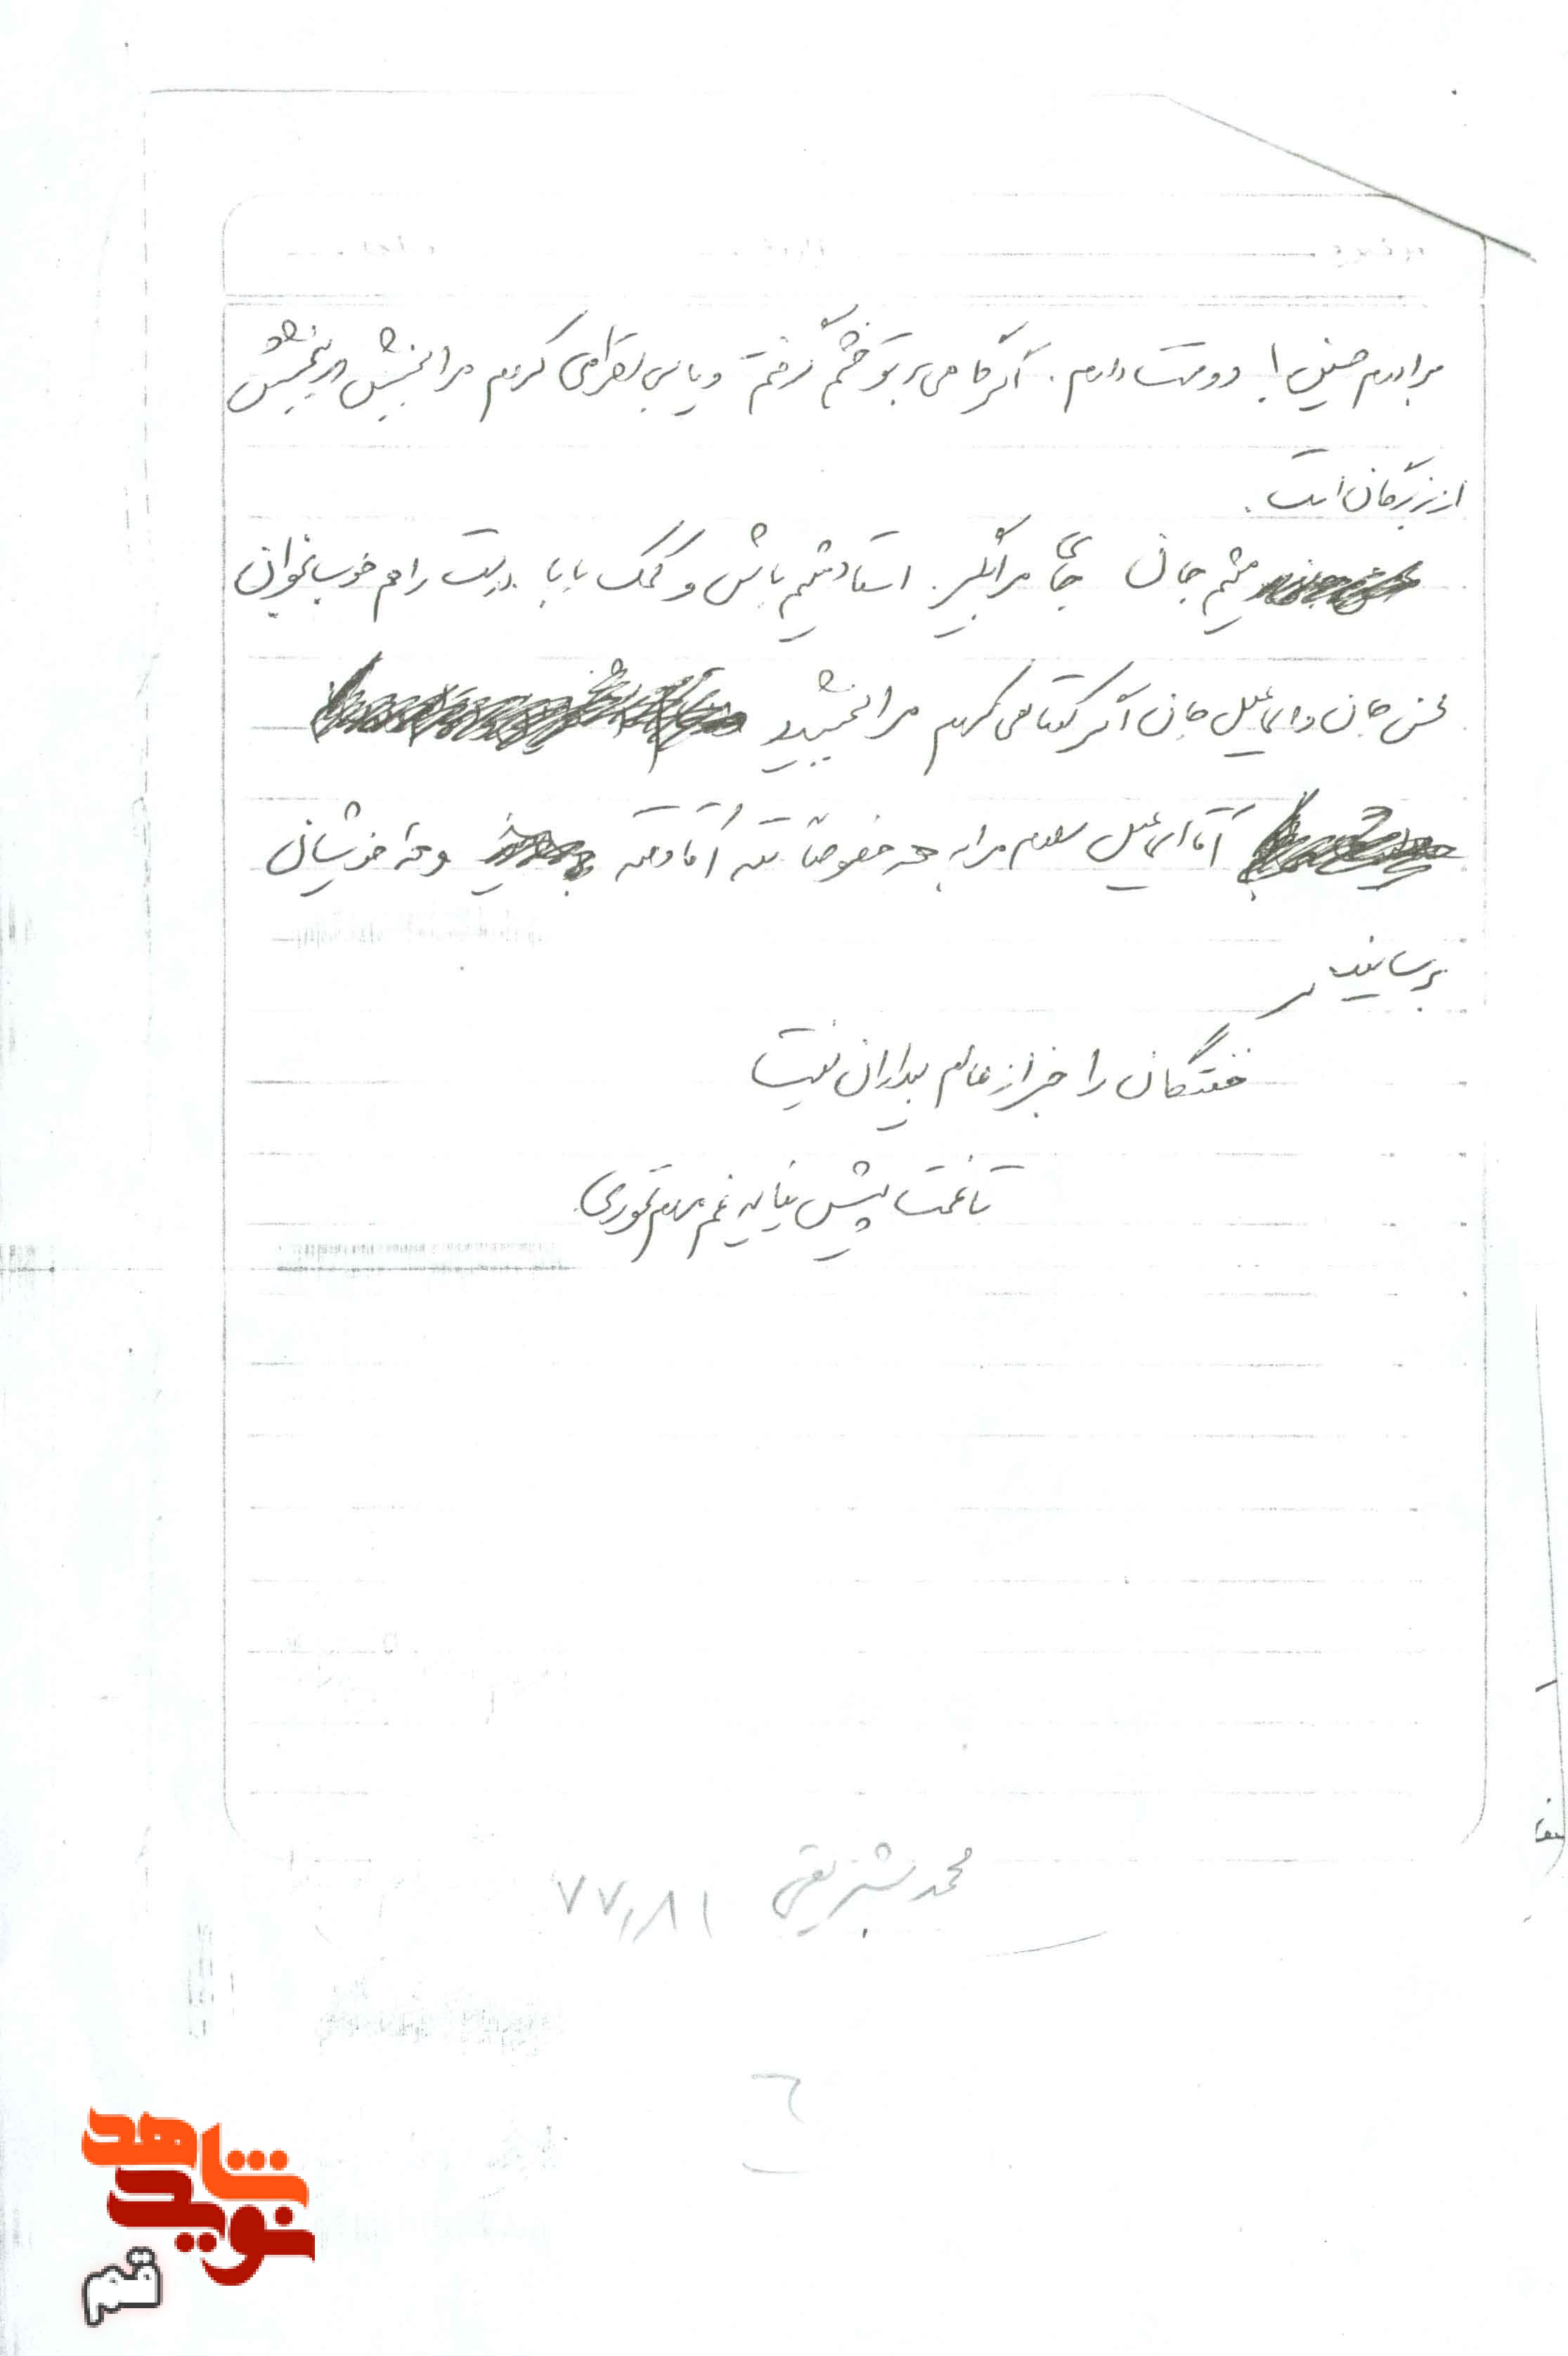 برادرم حسین! دوستت دارم. اگر گاهی بر تو خشم گرفتم و یا بی احترامی کردم مرا ببخش که بخشش
از بزرگان است.
میثم جان جای مرا بگیر. استاد میثم باش و کمک بابا. درست را هم خوب بخوان
محسن جان و اسماعیل جان اگر کوتاهی کردم مرا ببخشید
آقا اسماعیل سلام مرا به همه خصوصاً ننه آقا و ننه و همه خویشان
برسانید
خفتگان را خبر از عالم بیداران نیست
تا غمت پیش نیاید غم مردم نخوری
محمد شریفی ۷۷،۸۱
۶
شاهد
نوید
قم